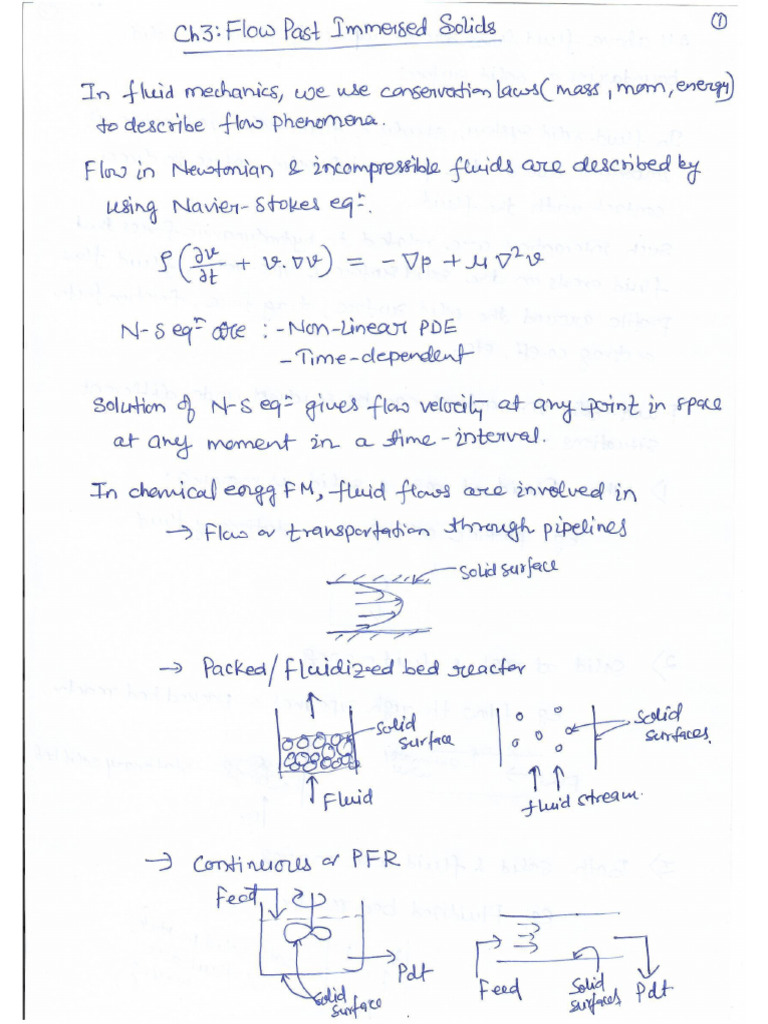 Ch3: Flow Past Immersed Solids
①
In fluid mechanics, we use conservation laws (mass, mom, energy)
to describe flow phenomena.
Flow in Newtonian & incompressible fluids are described by
using Navier-Stokes eqⁿ.
ρ(∂v/∂t + v.∇v) = -∇p + μ∇²v
N-S eqⁿ are : - Non-Linear PDE
- Time-dependent
Solution of N-S eqⁿ gives flow velocity at any point in space
at any moment in a time-interval.
In chemical engg FM, fluid flows are involved in
→ Flow or transportation through pipelines
solid surface
→ Packed/fluidized bed reactor
solid surface
solid surfaces.
Fluid
fluid stream.
→ Continuous or PFR
Feed
Pdt
solid surface
Feed
solid surfaces
Pdt